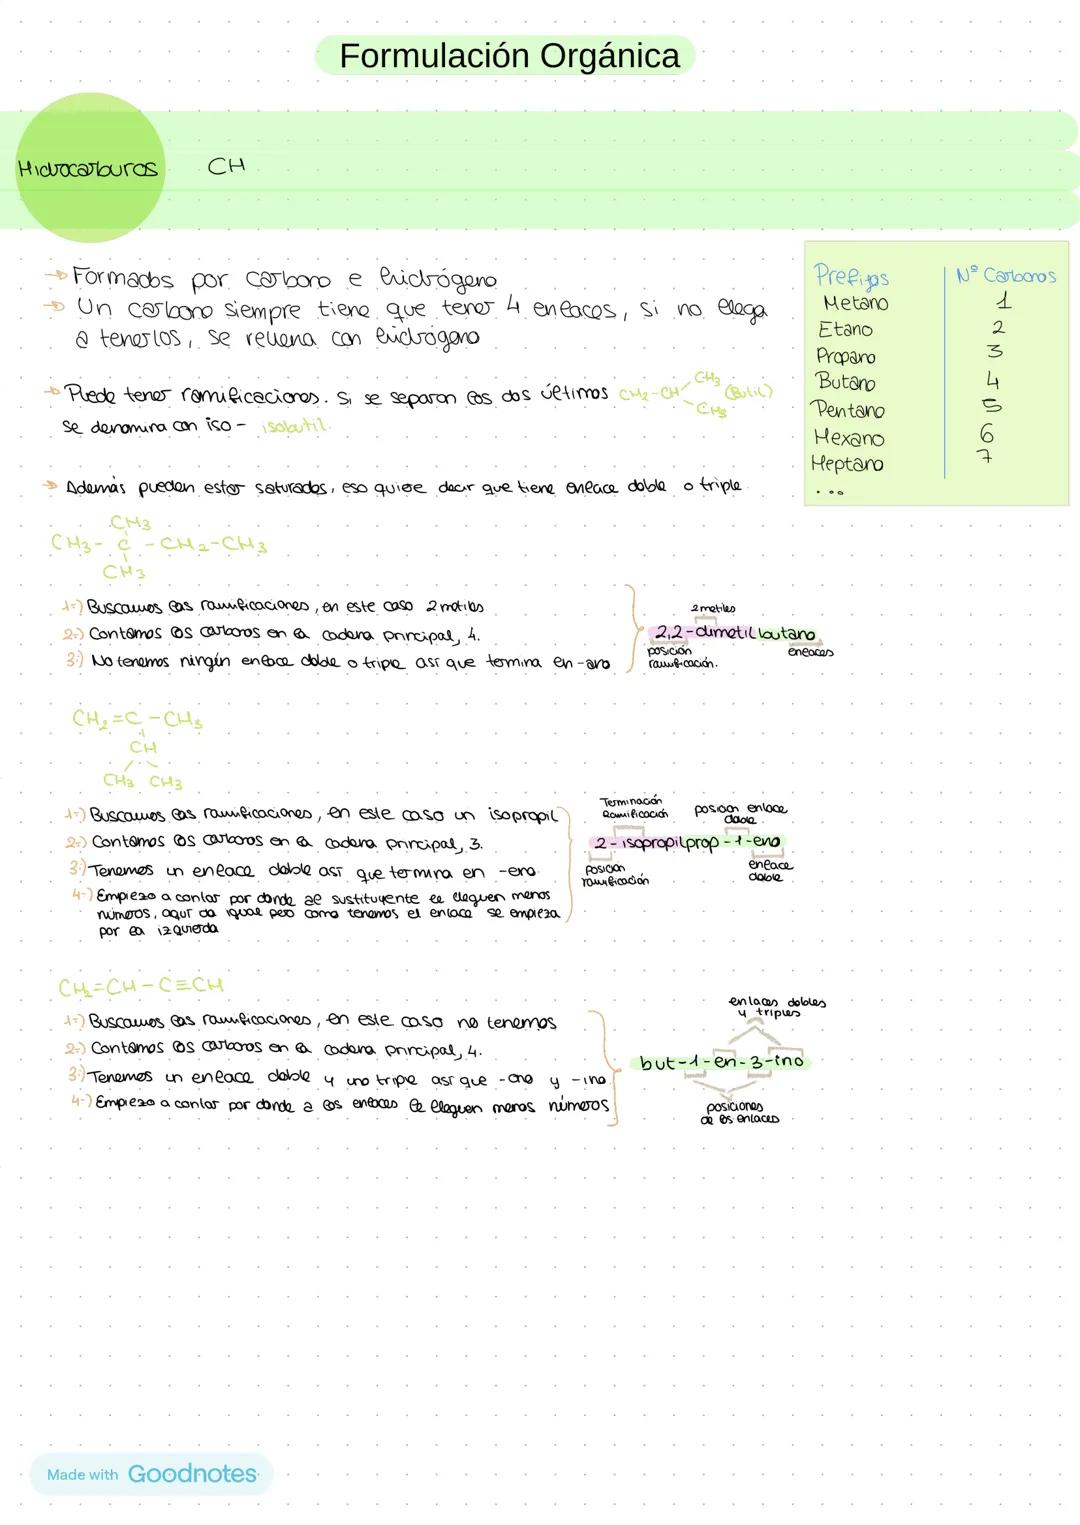 Formulación Orgánica
Hidrocarburos CH
→ Formados por carbono e hidrógeno
→ Un carbono siempre tiene que tener 4 enlaces, si no llega
a tenerlos, se rellena con hidrógeno
Prefijos Nº Carbonos
Metano 1
Etano 2
Propano 3
Butano 4
Pentano 5
Hexano 6
Heptano 7
...
→ Puede tener ramificaciones. Si se separan los dos últimos CH2-CH CH3 CH3 (Butil)
se denomina con iso- isobutil.
→ Además pueden estar saturados, eso quiere decir que tiene enlace doble o triple
CH3
CH3-C-CH2-CH3
CH3
1-) Buscamos las ramificaciones, en este caso 2 metilos
2-) Contamos los carbonos en la cadena principal, 4.
3-) No tenemos ningún enlace doble o triple así que termina en -ano
2 metilos
2,2-dimetilbutano
posición
ramificación.
enlaces
CH2=C-CH3
CH
CH3 CH3
1-) Buscamos las ramificaciones, en este caso un isopropil
2-) Contamos los carbonos en la cadena principal, 3.
3-) Tenemos un enlace doble así que termina en -eno.
4-) Empiezo a contar por donde al sustituyente le lleguen menos
números, aquí da igual pero como tenemos el enlace se empieza
por la izquierda
Terminación
Ramificación
posición enlace
doble
2-isopropilprop-1-eno
posición
ramificación
enlace
doble
CH2=CH-C≡CH
1-) Buscamos las ramificaciones, en este caso no tenemos
2-) Contamos los carbonos en la cadena principal, 4.
3-) Tenemos un enlace doble y uno triple así que -eno y -ino.
4-) Empiezo a contar por donde a los enlaces le lleguen menos números
enlaces dobles
y triples
but-1-en-3-ino
posiciones
de los enlaces
Made with Goodnotes